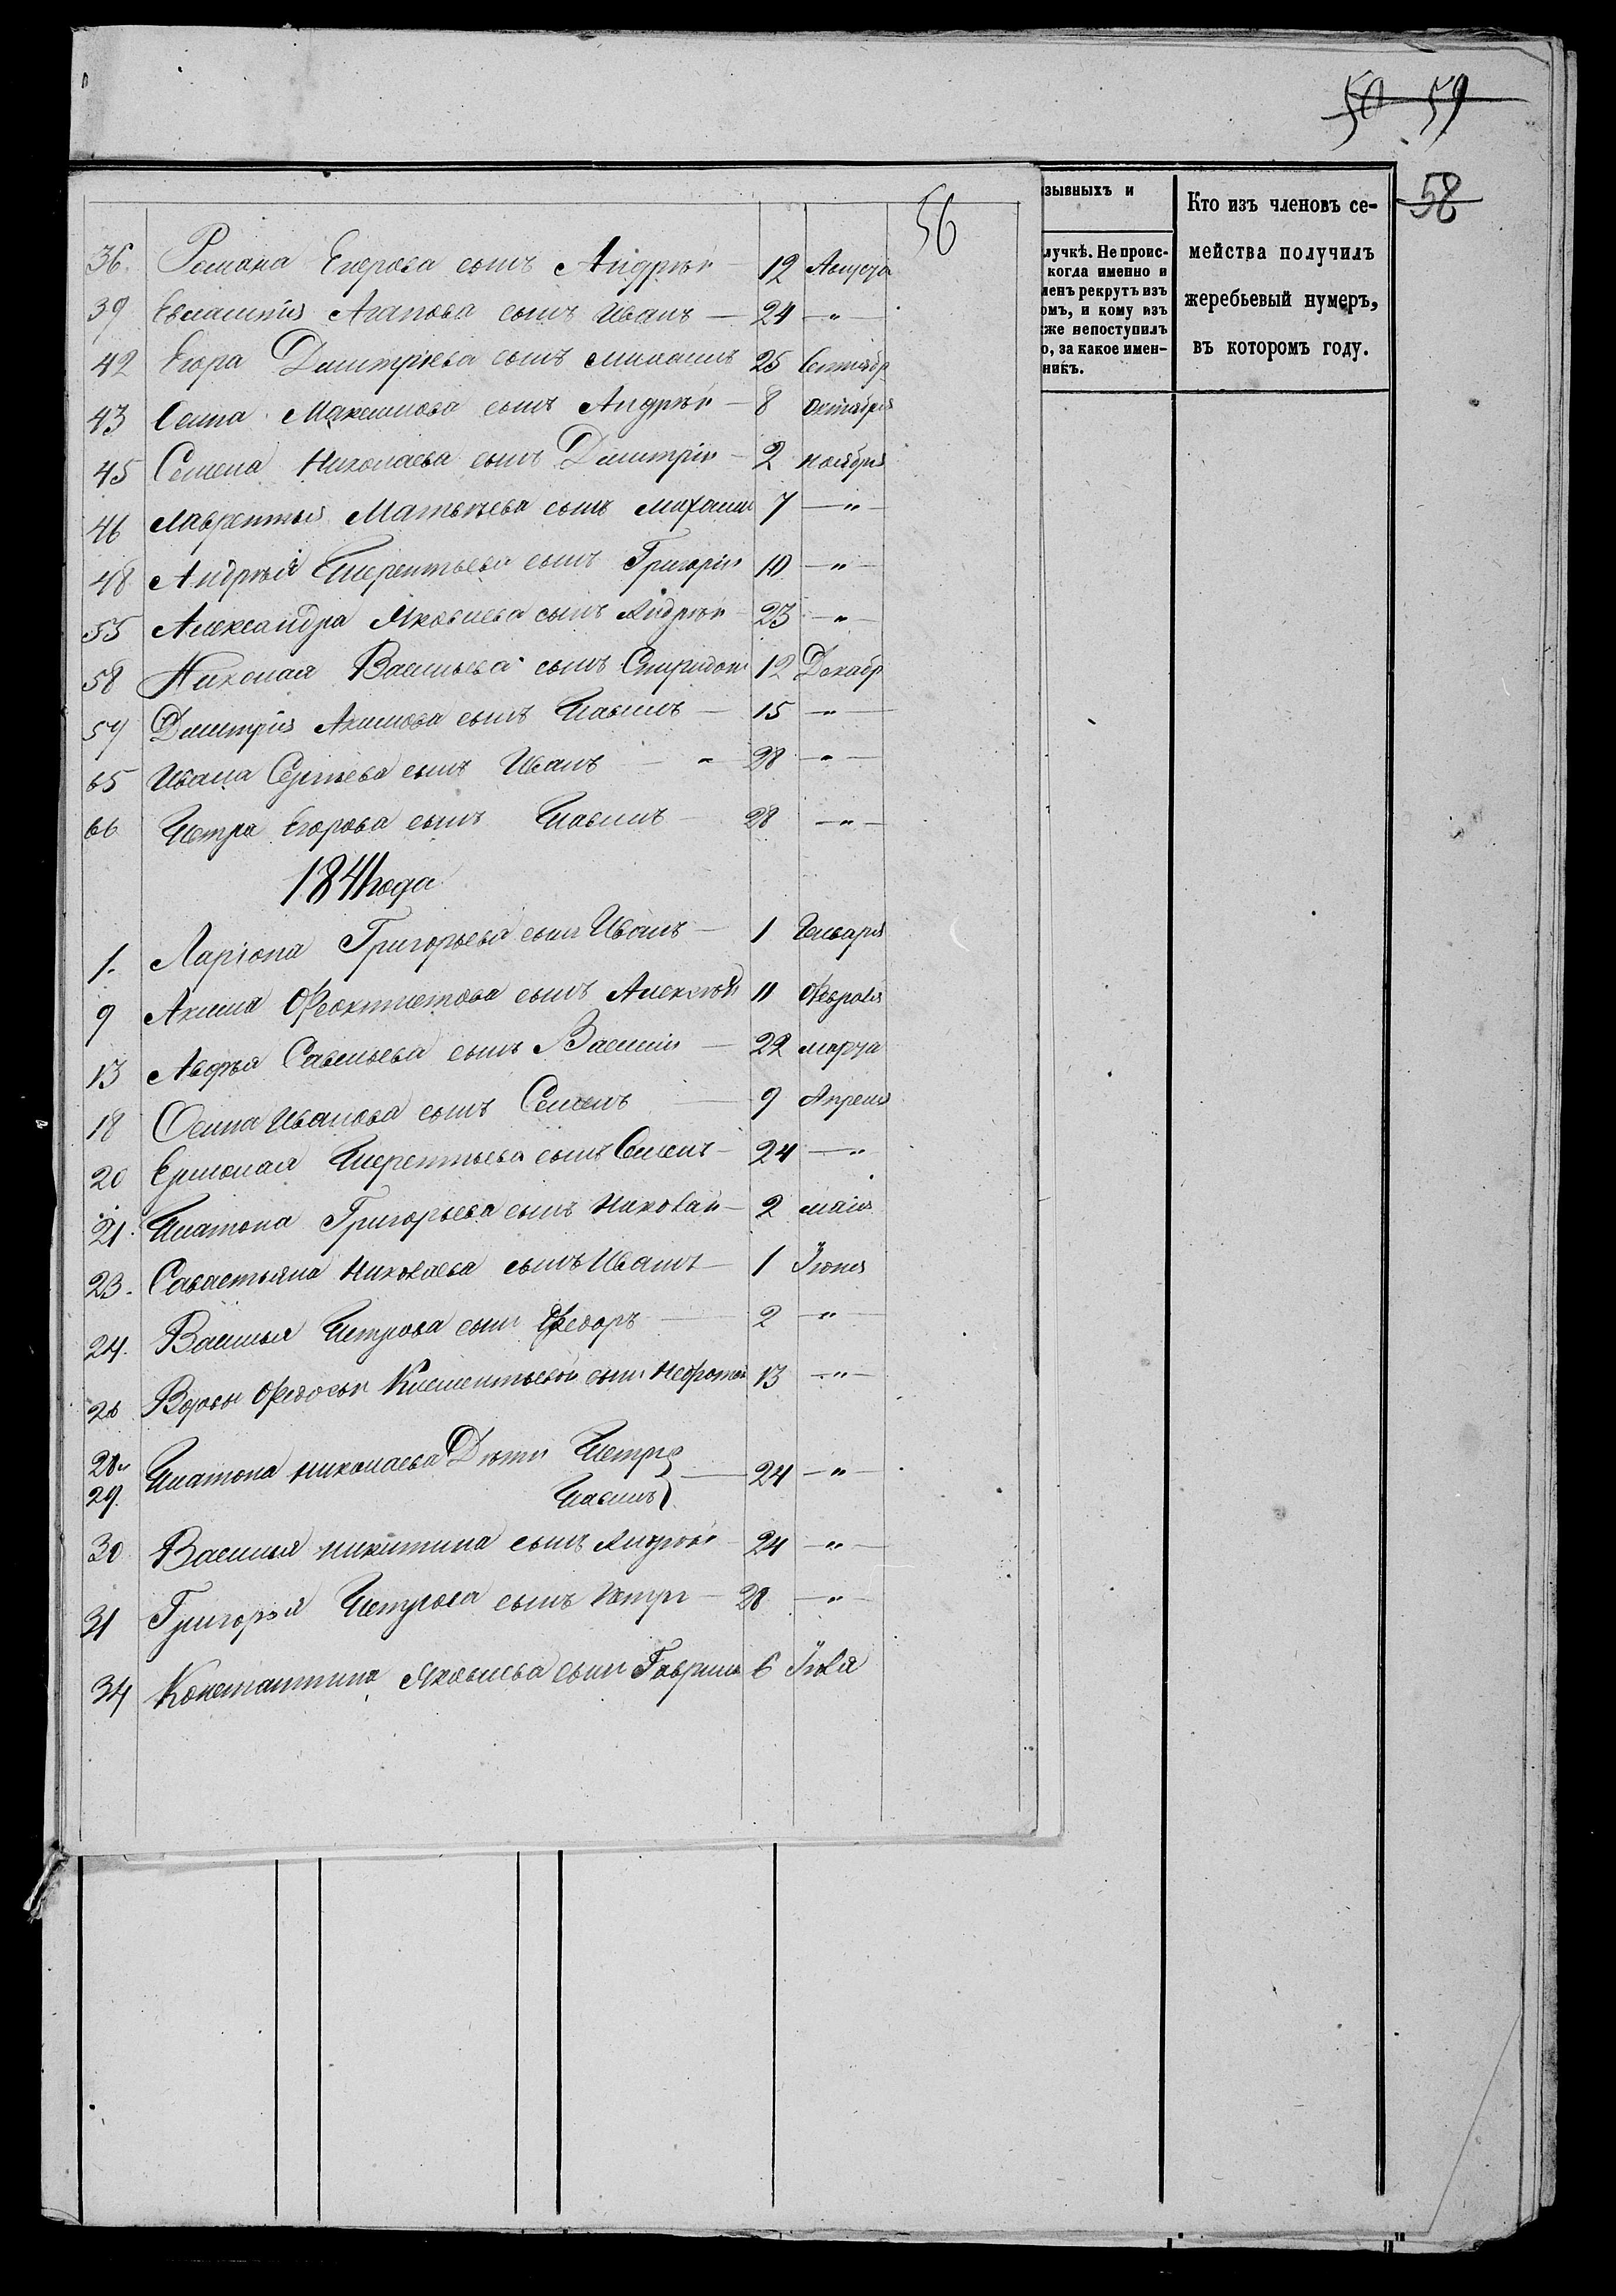 50 59
58
56
зывныхъ и
лучкѣ. Не проис-
когда именно и
менъ рекрутъ изъ
омъ, и кому изъ
же непоступилъ
о, за какое имен-
никъ.
Кто изъ членовъ се-
мейства получилъ
жеребьевый нумеръ,
въ котором году.
36. Романа Егерова сынъ Андрѣй — 12 Августа
39 Евлампія Агапова сынъ Иванъ — 24 — " —
42 Егора Дмитріева сынъ Михаилъ 25 Сентябр
43 Осипа Максимова сынъ Андрѣй — 8 Октября
45 Семена Николаева сынъ Дмитрій — 2 ноября
46 Лаврентья Матвѣева сынъ Михаилъ 7 — " —
48 Андрѣя Терентьева сынъ Григорій 10 — " —
55 Александра Яковлева сынъ Андрѣй — 23 — " —
58 Николая Васильева сынъ Спиридонъ 12 Декабр
59 Дмитрія Акимова сынъ Павилъ — 15 — " —
65 Ивана Сергѣева сынъ Иванъ — " — 28 — " —
66 Петра Егорова сынъ Павилъ — 28 — " —
1841 года
1. Ларіона Григорьева сынъ Иванъ — 1 Генваря
9 Акима Ѳеоктистова сынъ Алексѣй 11 Февраля
13 Авдѣя Савельева сынъ Василій — 22 марта
18 Осипа Иванова сынъ Семенъ — 9 Апреля
20 Ермолая Терентьева сынъ Семенъ — 24 — "
21. Платона Григорьева сынъ Николай — 2 маія
23. Савастьяна Николаева сынъ Иванъ — 1 Іюня
24. Василья Петрова сынъ Федоръ — 2 — " —
26 Вдовы Федосьи Клементьевой сынъ 13 — " —
28 и Платона Николаева Дѣти Петръ
29. Павилъ — 24 — " —
30 Василья Никитина сынъ Андрѣй — 24 — " —
31 Григорья Петрова сынъ Петръ — 28 — " —
34 Константина Яковлева сынъ Гаврила 6 Іюля